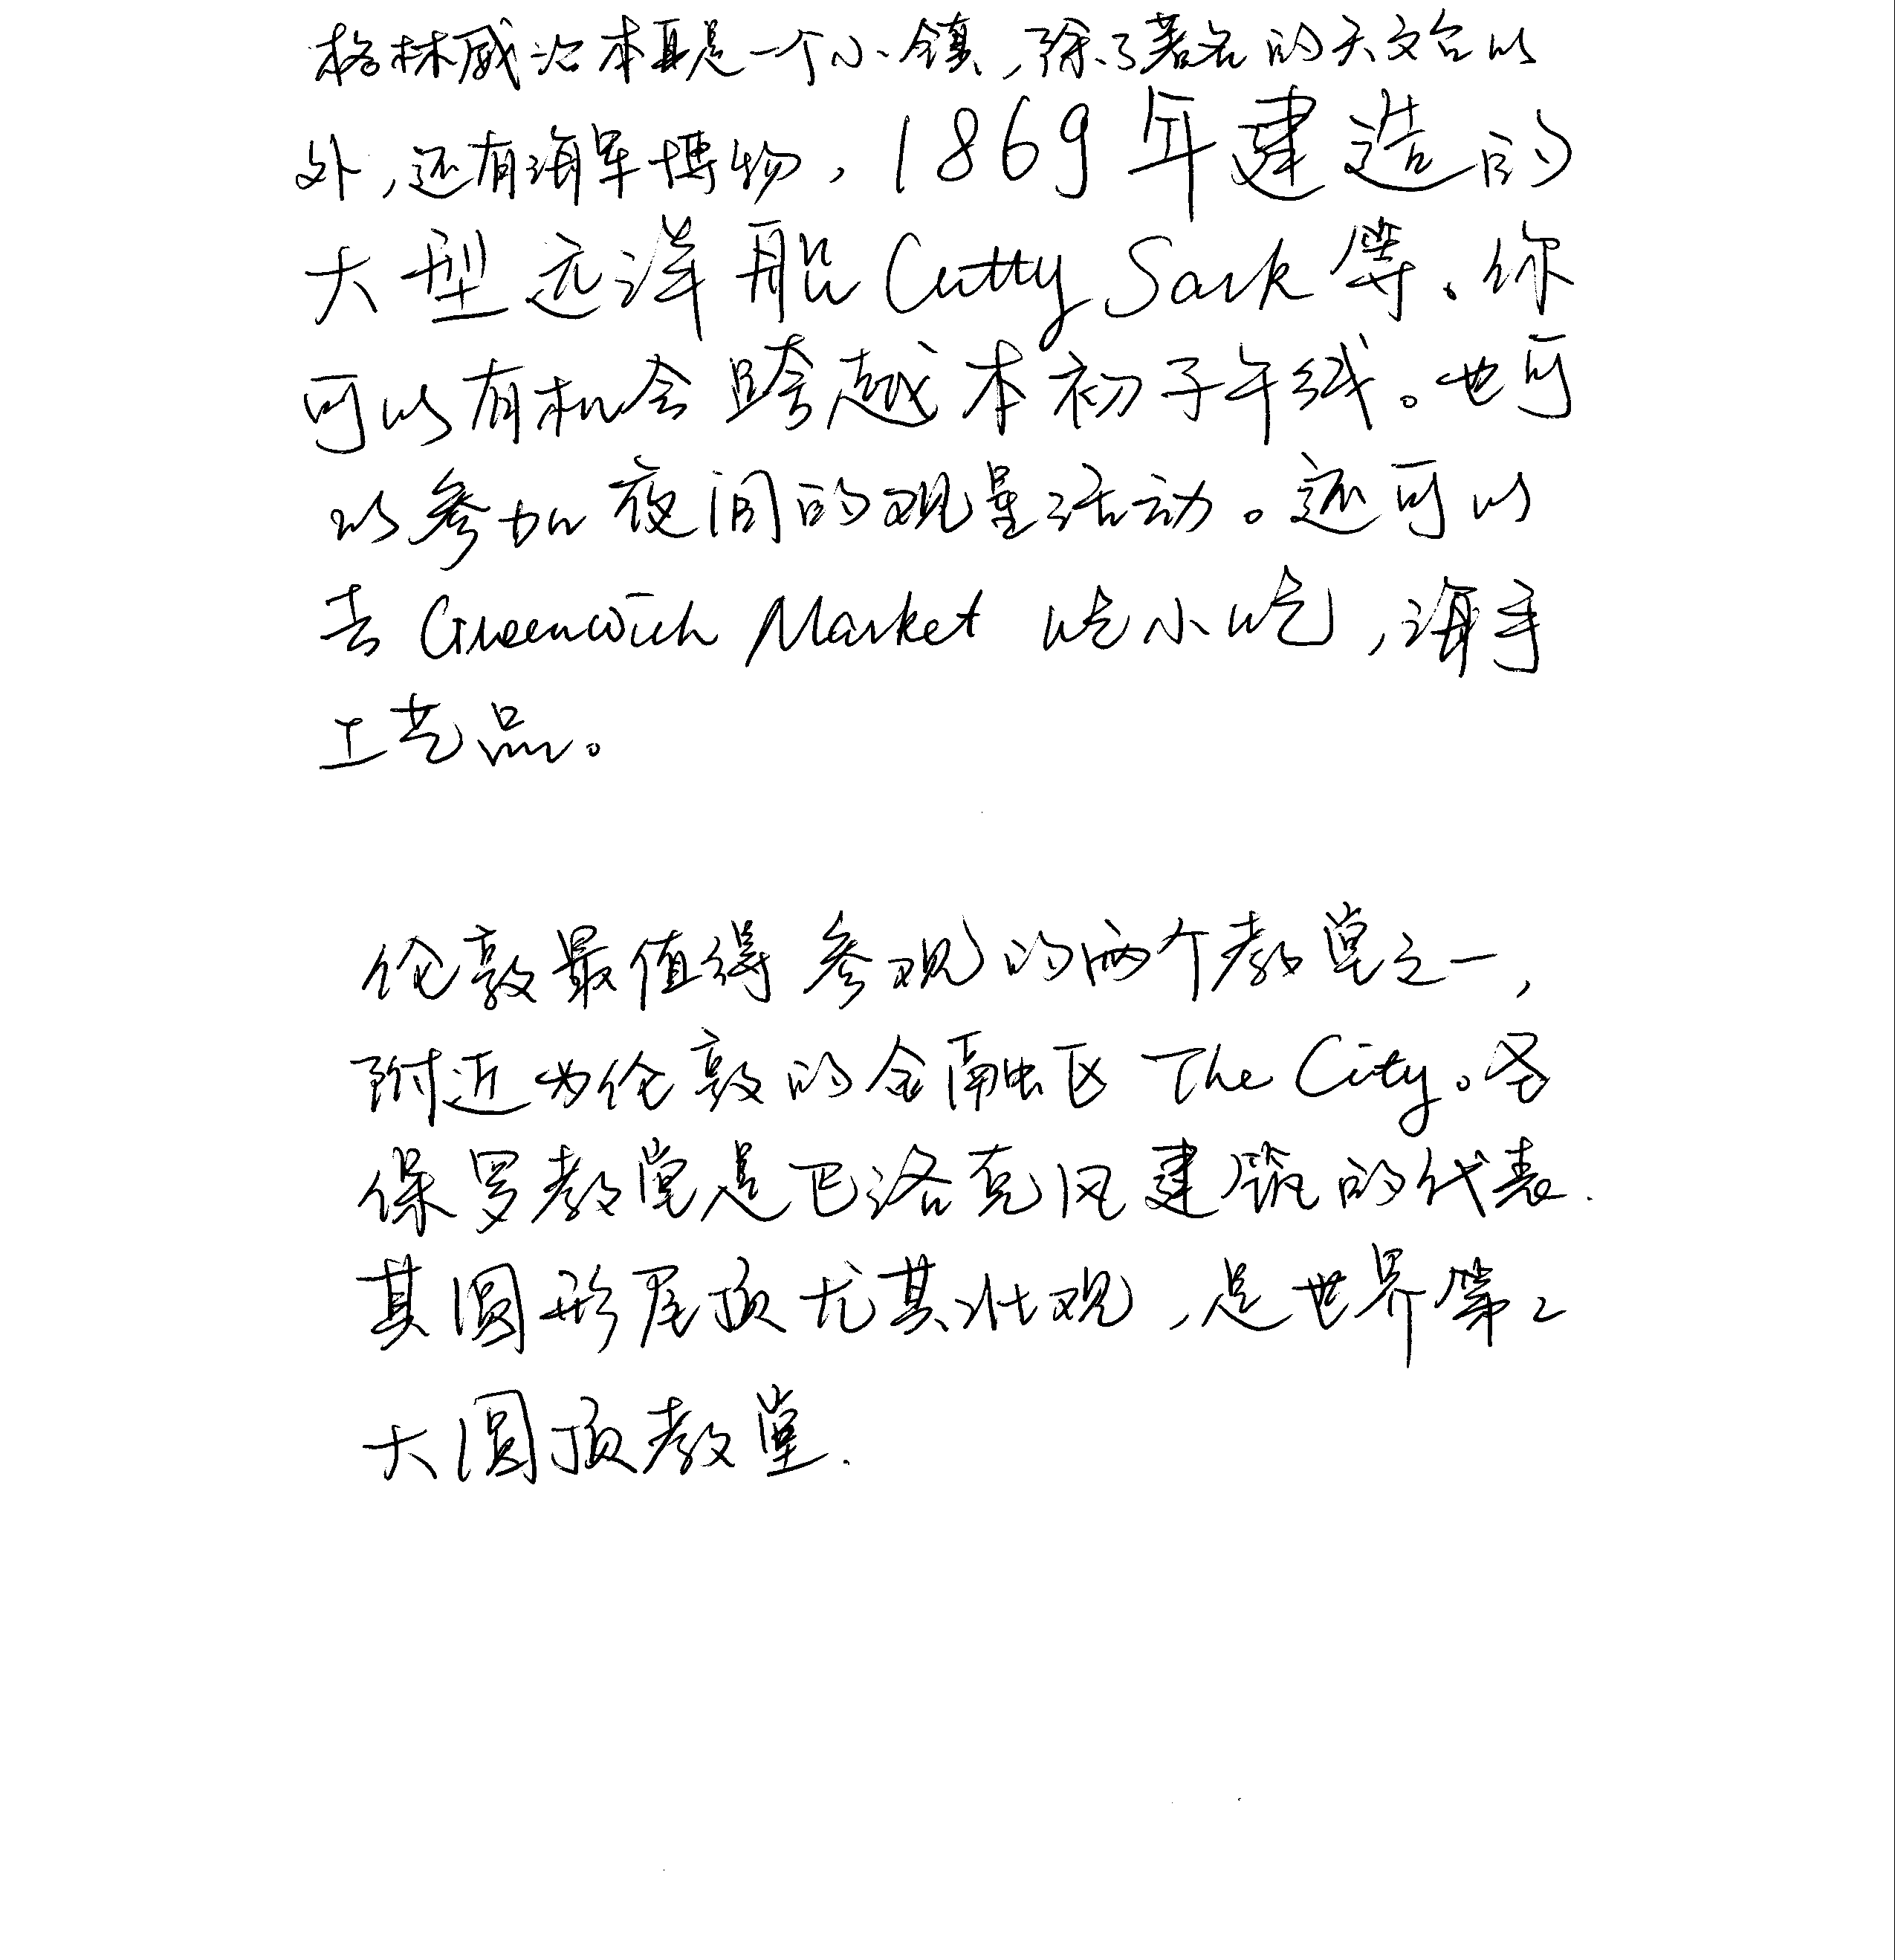 格林威治本身是一个小镇,除了著名的天文台以
外,还有海军博物,1869年建造的
大型远洋船Cutty Sark等。你
可以有机会跨越本初子午线。也可
以参加夜间的观星活动。还可以
去 Greenwich Market 吃小吃,淘手
工艺品。
伦敦最值得参观的两个教堂之一,
附近为伦敦的金融区 The City。圣
保罗教堂是巴洛克风建筑的代表.
其圆形屋顶尤其壮观,是世界第2
大圆顶教堂.